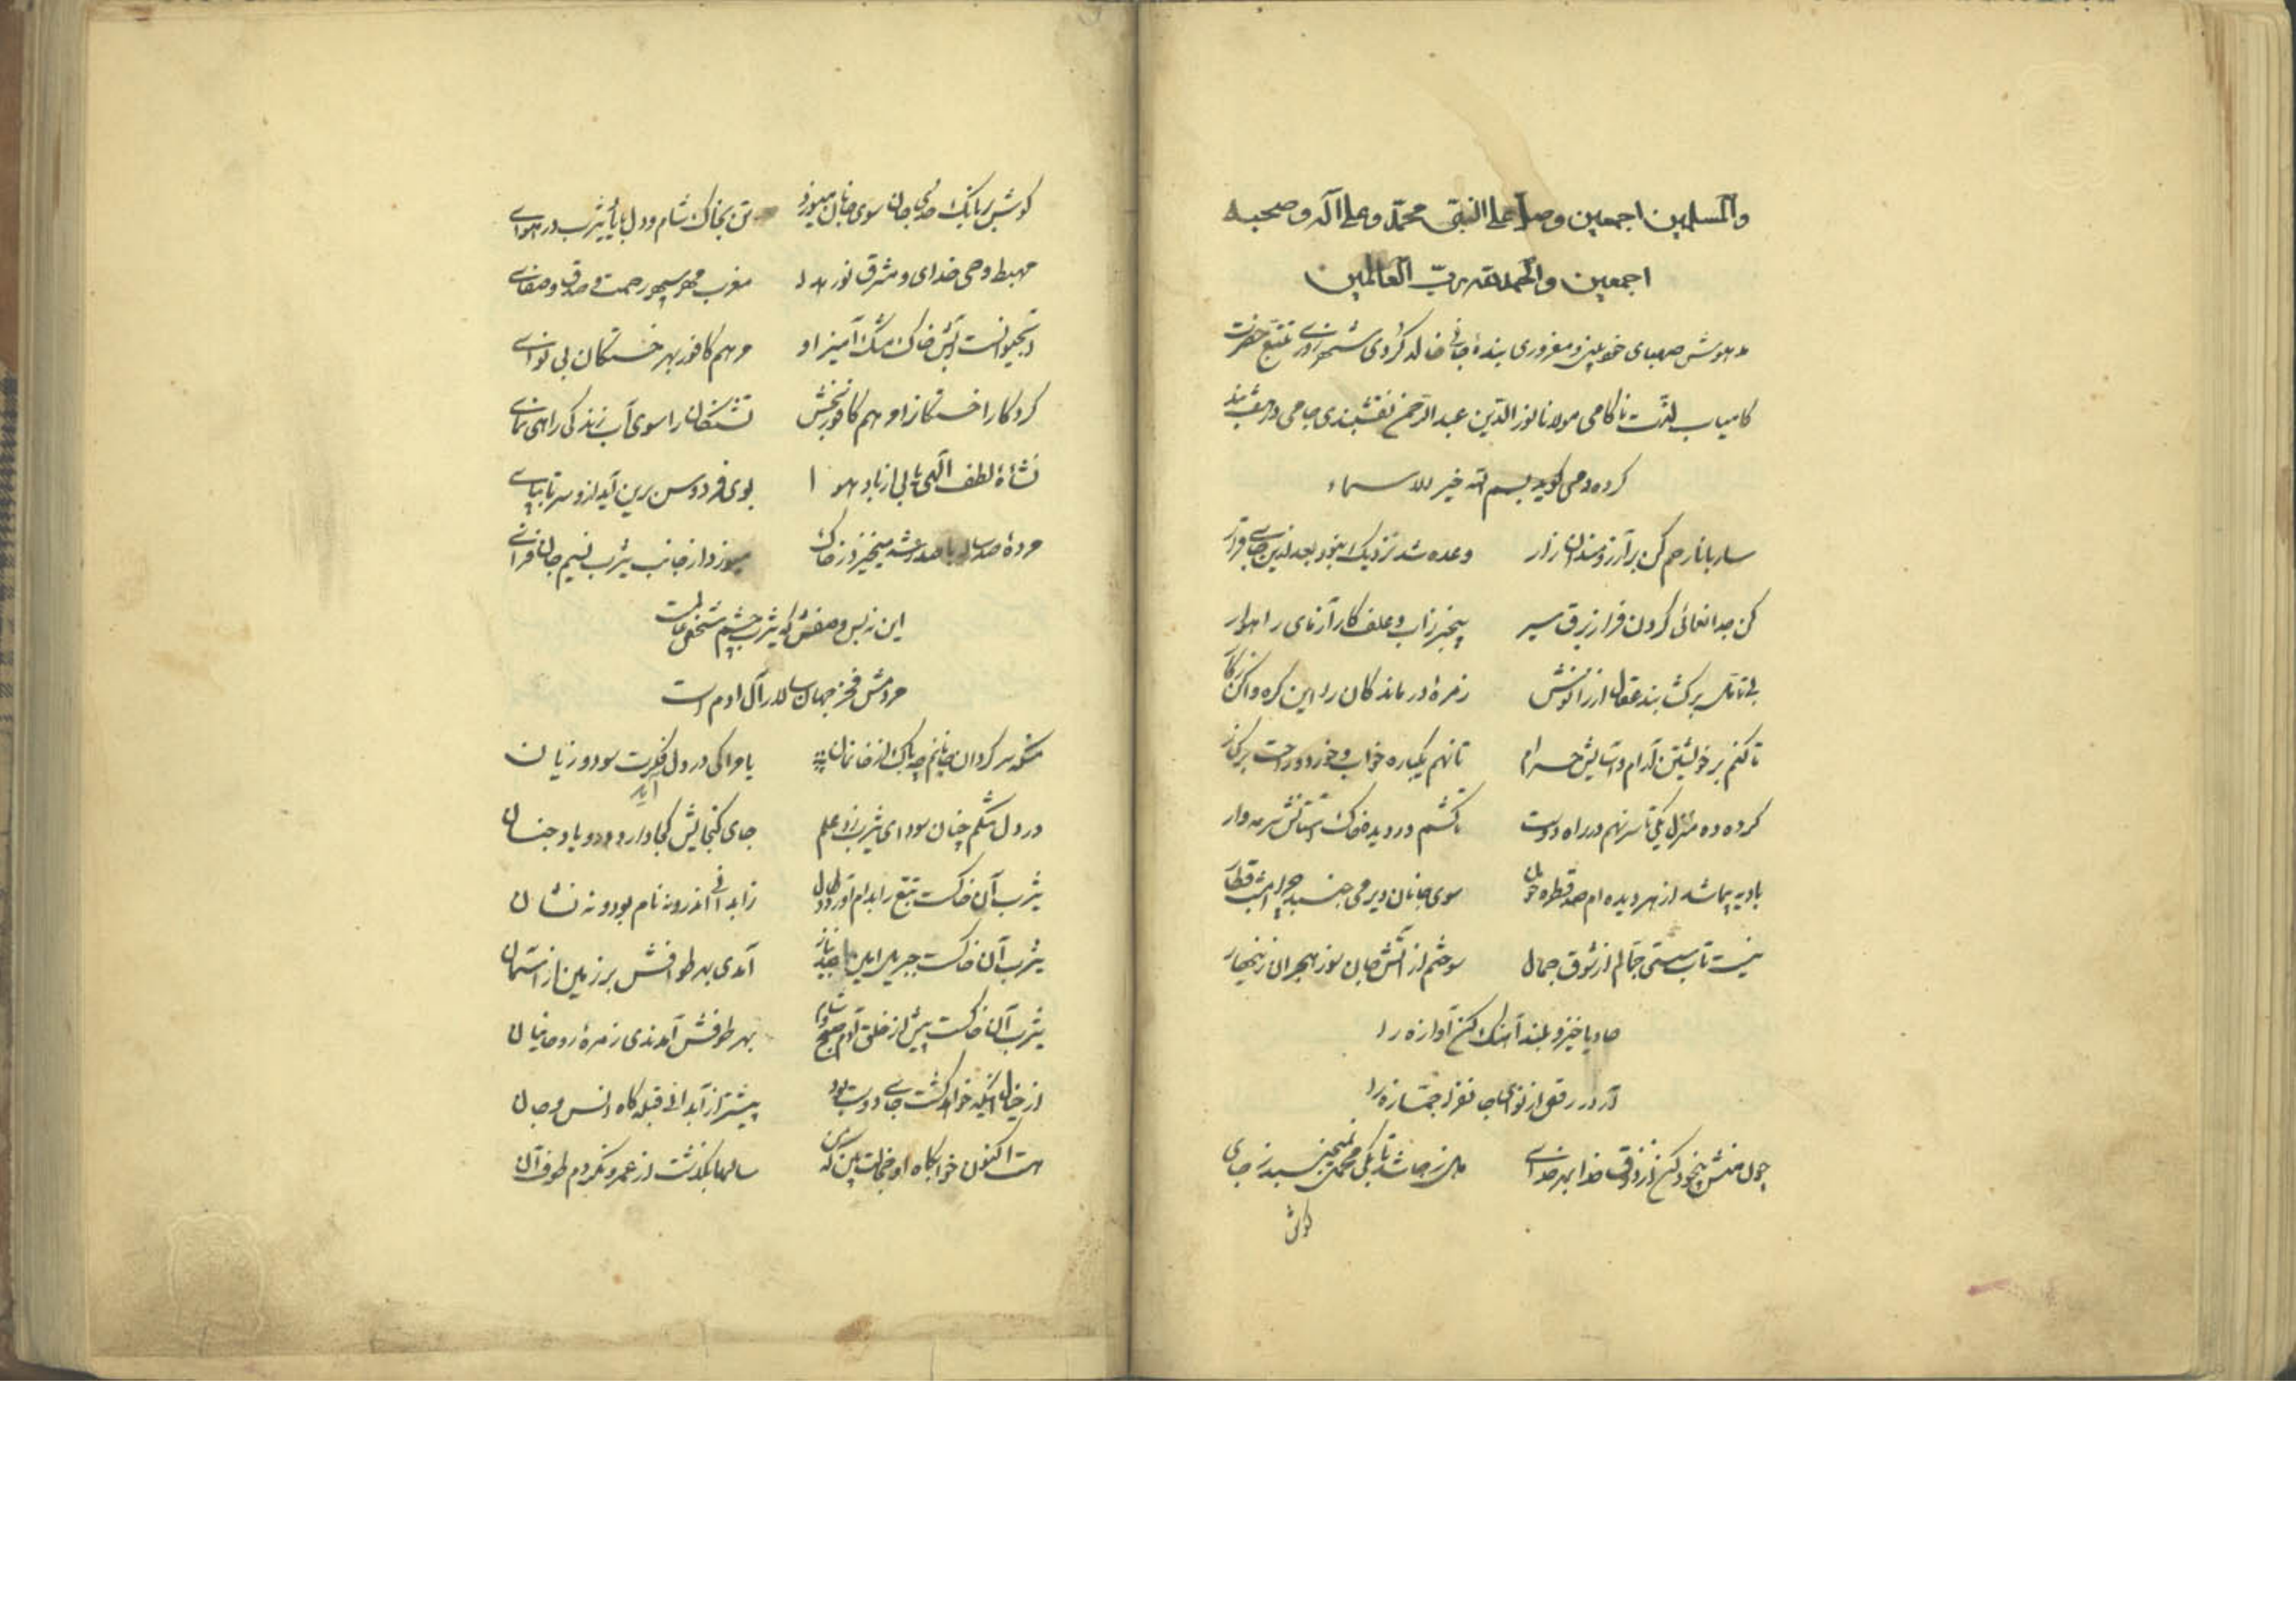 والمسلمين اجمعين وصل على النبي محمد وعلى آله وصحبه
اجمعين والحمد لله رب العالمين
مدهوش صهبای خودبینی و مغروری بندهٔ جانی خالد کردی شهرزوری تتبع حضرت
کامیاب لذت ناکامی مولانا نور الدین عبد الرحمن نقشبندی جامی
کرده و می کوید بسم الله خیر الاسماء
ساربانا رحم کن بر آرزومندان زار وعده شد نزدیک نبود بعد ازین جای قرار
کن جدا نمائی کردون فراز برق سیر بیخبر ز آب و علف کار آزمای راهوار
بی تامل برکشا بند عقال از زانویش زمرهٔ درماندکان را این کره واکن ز کار
تا کنم بر خویشتن آرام و آسایش حرام تا نهم یکباره خواب و خورد و راحت بر کنار
کرده ده منزل یکی تا سر نهم در راه دوست تا کشم در دیده خاک آستانش سرمه وار
بادیه پیما شد از بهر دیده ام صد قطره خون سوی جانان دیر می جنبد چرا امشب قطار
نیست تاب سستی جمالم از شوق جمال سوختم از آتش جان سوز هجران زینهار
حادیا خیز و بلند آهنک کن آوازه را
آر در رقص از نوای جانفزا جمازه را
چون منش بیخود کن از ذوق خدا بهر خدای من ز جا شد تا بکی محمل نمی جنبد ز جای
کوش
کوش بر بانک حدی جان سوی جانان میرود تن بخاک شام و دل با یثرب در هوای
مهبط وحی خدای و مشرق نور هدا مغرب مهر سپهر رحمت و صدق و صفای
آبحیوانست آتش خاک مشک آمیز او مرهم کافور بهر خستکان بی نوای
کردکارا خستکانرا مرهم کافور بخش تشنکان را سوی آب زندکی راهی نمای
نشأهٔ لطف الهی یابی از باد هوا بوی فردوس برین آید ازو سر تا بپای
مردهٔ صد ساله با صد رعشه میخیزد ز خاک میوزد از جانب یثرب نسیم جان فزای
این نه بس وصفش که یثرب چشم شخص عالمست
مردمش فخر جهان سالار آل ادم است
من که سر کردان جانانم چه باک از خانمان با مرا کی در دل آید فکرت سود و زیان
در دل تنکم چنان سودای یثرب زد علم جای کنجایش کجا دارد درو یاد جنان
یثرب آن خاکست تبع را بدام آورد دل زابدانی اندرو نه نام بود و نه نشان
یثرب آن خاکست جبریل امین با صد نیاز آمدی بهر طوافش بر زمین از آسمان
یثرب آن خاکست پیش از خلق آدم صبح و شام بهر طوفش آمدندی زمرهٔ روحانیان
از خیال آنکه خواهد کشت جای دوست بود پیشتر از آبدانی قبله کاه انس و جان
هست اکنون خوابکاه او خجالت بین که من سالها بکذشت از عمر و نکردم طوف آن